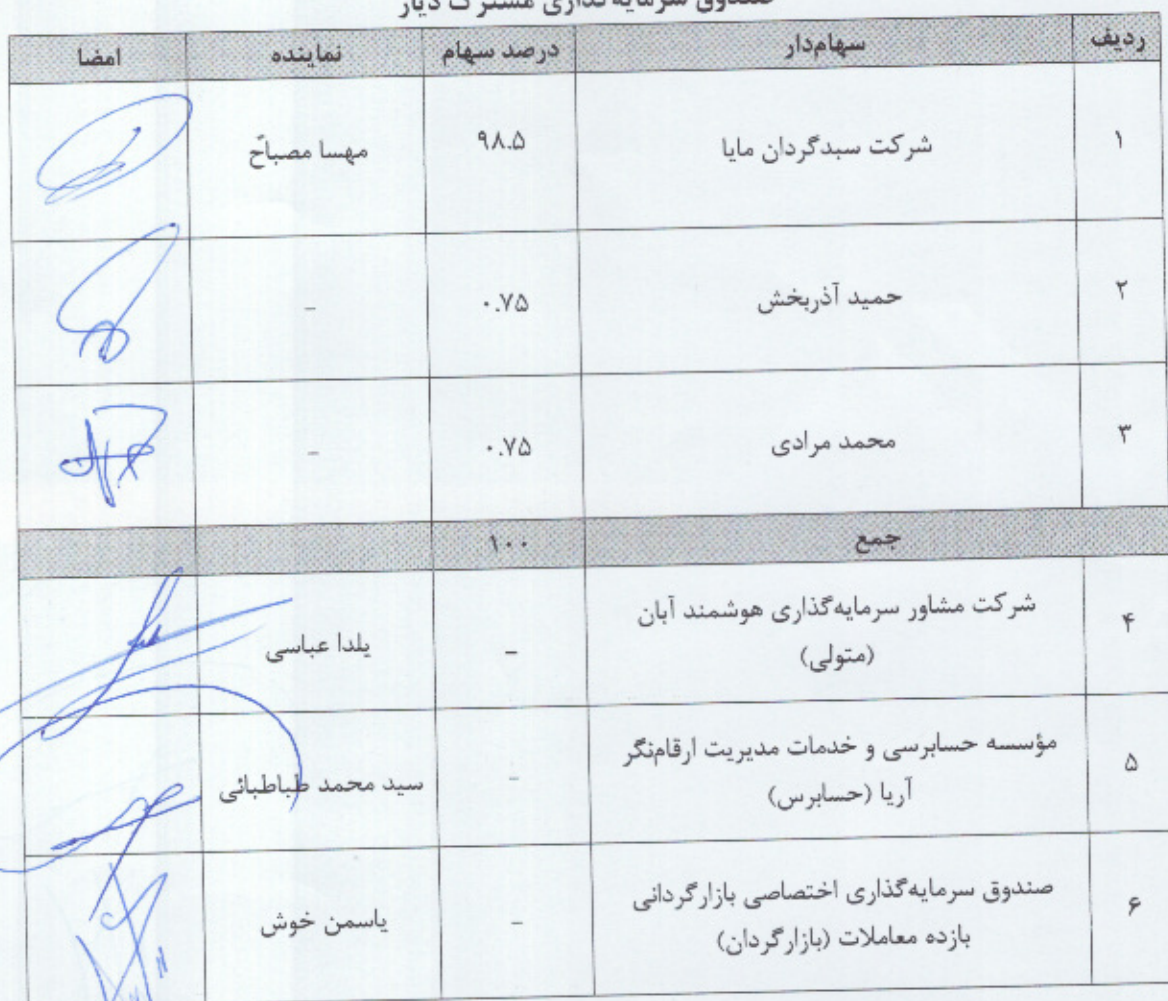 صندوق سرمایه‌گذاری مشترک دیار
ردیف سهام‌دار درصد سهام نماینده امضا
۱ شرکت سبدگردان مایا ۹۸.۵ مهسا مصباح
۲ حمید آذربخش ۰.۷۵ -
۳ محمد مرادی ۰.۷۵ -
جمع ۱۰۰
۴ شرکت مشاور سرمایه‌گذاری هوشمند آبان - یلدا عباسی
(متولی)
۵ مؤسسه حسابرسی و خدمات مدیریت ارقام‌نگر - سید محمد طباطبائی
آریا (حسابرس)
۶ صندوق سرمایه‌گذاری اختصاصی بازارگردانی - یاسمن خوش
بازده معاملات (بازارگردان)